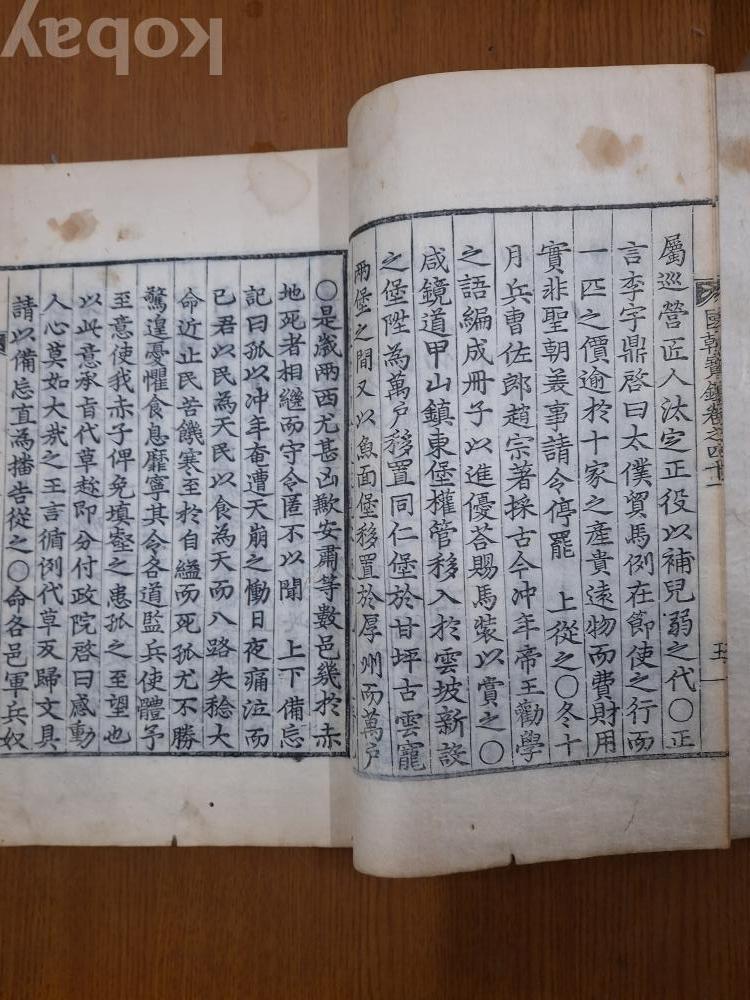 kobay
國朝寶鑑卷之四十一
屬巡營匠人汰定正役以補兒弱之代○正
言李宇鼎啓曰太僕貿馬例在節使之行而
一匹之價逾於十家之產貴遠物而費財用
實非聖朝美事請令停罷 上從之○冬十
月兵曹佐郎趙宗著採古今冲年帝王勸學
之語編成冊子以進優答賜馬裝以賞之○
咸鏡道甲山鎮東堡權管移入於雲坡新設
之堡陞為萬戶移置同仁堡於甘坪古雲寵
兩堡之間又以魚面堡移置於厚州而萬戶
○是歲兩西尤甚凶歉安肅等數邑幾於赤
地死者相繼而守令匿不以聞 上下備忘
記曰孤以冲年奄遭天崩之慟日夜痛泣而
已君以民為天民以食為天而八路失稔大
命近止民苦饑寒至於自縊而死孤尤不勝
驚遑憂懼食息靡寧其令各道監兵使體予
至意使我赤子俾免填壑之患孤之至望也
以此意承旨代草趁即分付政院啓曰感動
人心莫如大哉之王言循例代草亥歸文具
請以備忘直為播告從之○命各邑軍兵奴